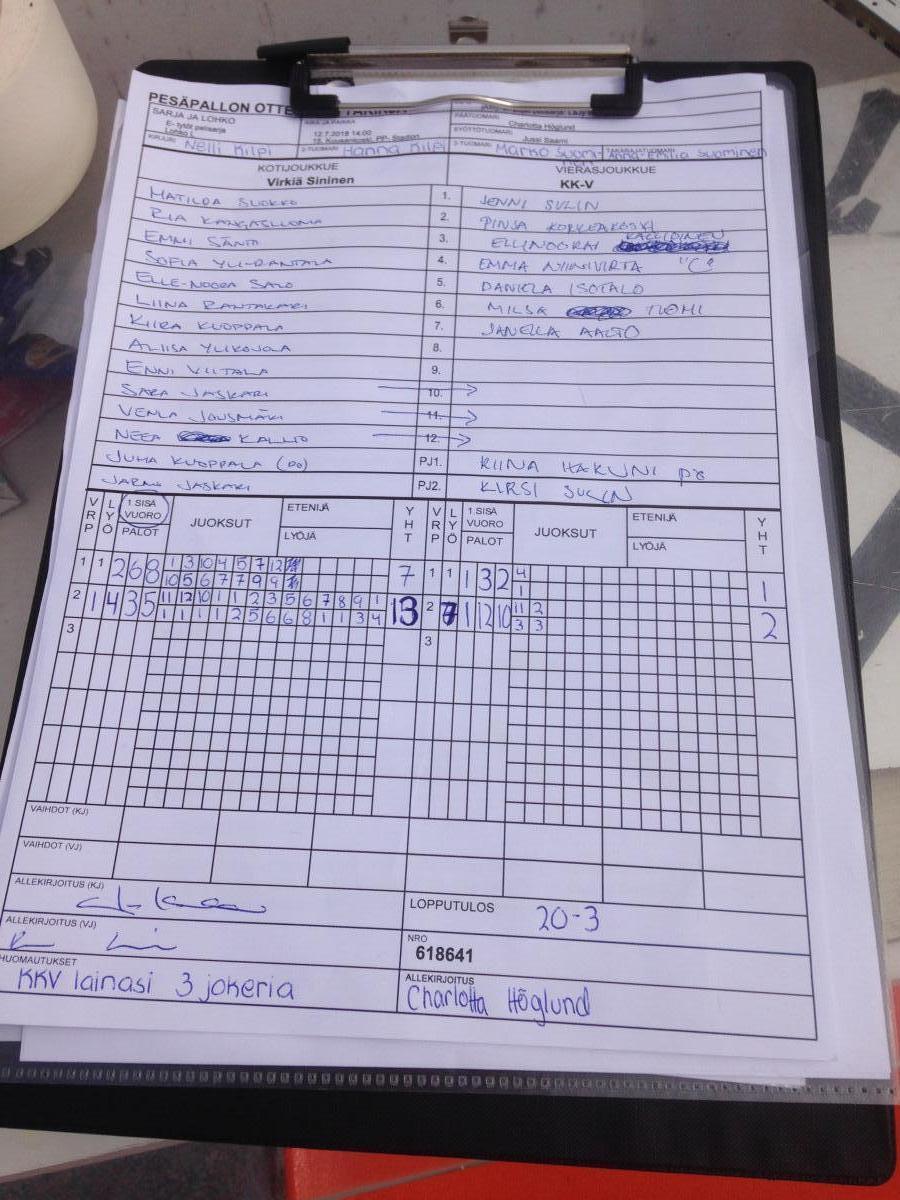 PESÄPALLON OTTE
SARJA JA LOHKO
E- tytöt pelisarja
Lohko L
12.7.2018 14.00
Charlotta Höglund
SYÖTTÖTUOMARI
Jussi Saarni
KIRJURI Nelli Kilpi 2-TUOMARI Hanna Kilpi 3-TUOMARI Marko Suomi- TAKARAJATUOMARI Anna-Emilia Suominen
nen
KOTIJOUKKUE VIERASJOUKKUE
Virkiä Sininen KK-V
MATILDA SUOKKO 1. JENNI SULIN
RIA KANGASLUOMA 2. PINJA KORKEAKOSKI
EMMI SÄNTI 3. ELLINOORAI
SOFIA YLI-RANTALA 4. EMMA NIINIVIRTA "C"
ELLE-NOORA SALO 5. DANIELA ISOTALO
LIINA RANTAKARI 6. MILSA TUOMI
KIIRA KUOPPALA 7. JANELLA AALTO
ALIISA YLIKOJOLA 8.
ENNI VIITALA 9.
SARA JASKARI 10.
VENLA JOUSMÄKI 11.
NEEA KALLIO 12.
JUHA KUOPPALA (PO) PJ1. RIINA HAKUNI
JARMO JASKARI PJ2. KIRSI SULIN
VRP LYÖ 1.SISÄ VUORO PALOT JUOKSUT ETENIJÄ LYÖJÄ YHT VRP LYÖ 1.SISÄ VUORO PALOT JUOKSUT ETENIJÄ LYÖJÄ YHT
1 1 2 6 8 1 3 10 4 5 7 12 7 1 1 1 3 2 4 1
10 5 6 7 7 9 9 1
2 1 4 3 5 11 12 10 1 1 2 3 5 6 7 8 9 1 13 2 7 1 12 10 11 2 2
1 1 1 1 2 5 6 6 8 1 1 3 4 3 3
3 3
VAIHDOT (KJ)
VAIHDOT (VJ)
ALLEKIRJOITUS (KJ) LOPPUTULOS 20-3
ALLEKIRJOITUS (VJ) NRO
618641
HUOMAUTUKSET ALLEKIRJOITUS
KKV lainasi 3 jokeria Charlotta Höglund